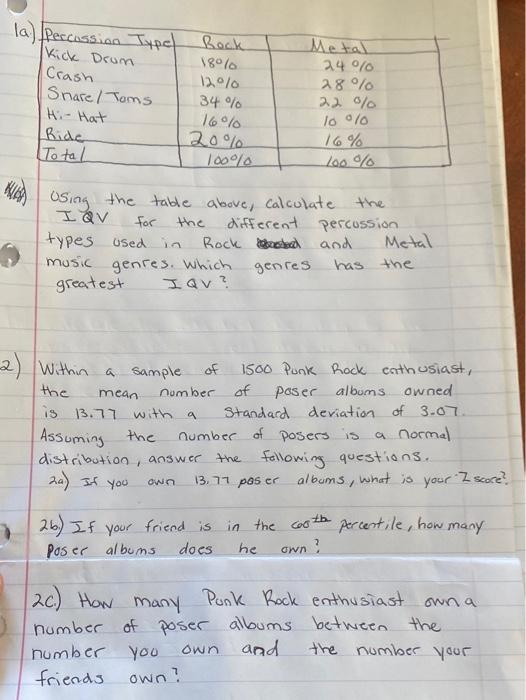 1a.) Percussion Type Rock Metal
Kick Drum 18% 24%
Crash 12% 28%
Snare/Toms 34% 22%
Hi-Hat 16% 10%
Ride 20% 16%
Total 100% 100%
Using the table above, calculate the
IQV for the different percussion
types used in Rock and Metal
music genres. Which genres has the
greatest IQV?
2) Within a sample of 1500 Punk Rock enthusiast,
the mean number of poser albums owned
is 13.77 with a Standard deviation of 3.07.
Assuming the number of posers is a normal
distribution, answer the following questions.
2a) If you own 13.77 poser albums, what is your Z score?
2b) If your friend is in the percentile, how many
poser albums does he own?
2c.) How many Punk Rock enthusiast own a
number of poser albums between the
number you own and the number your
friends own?